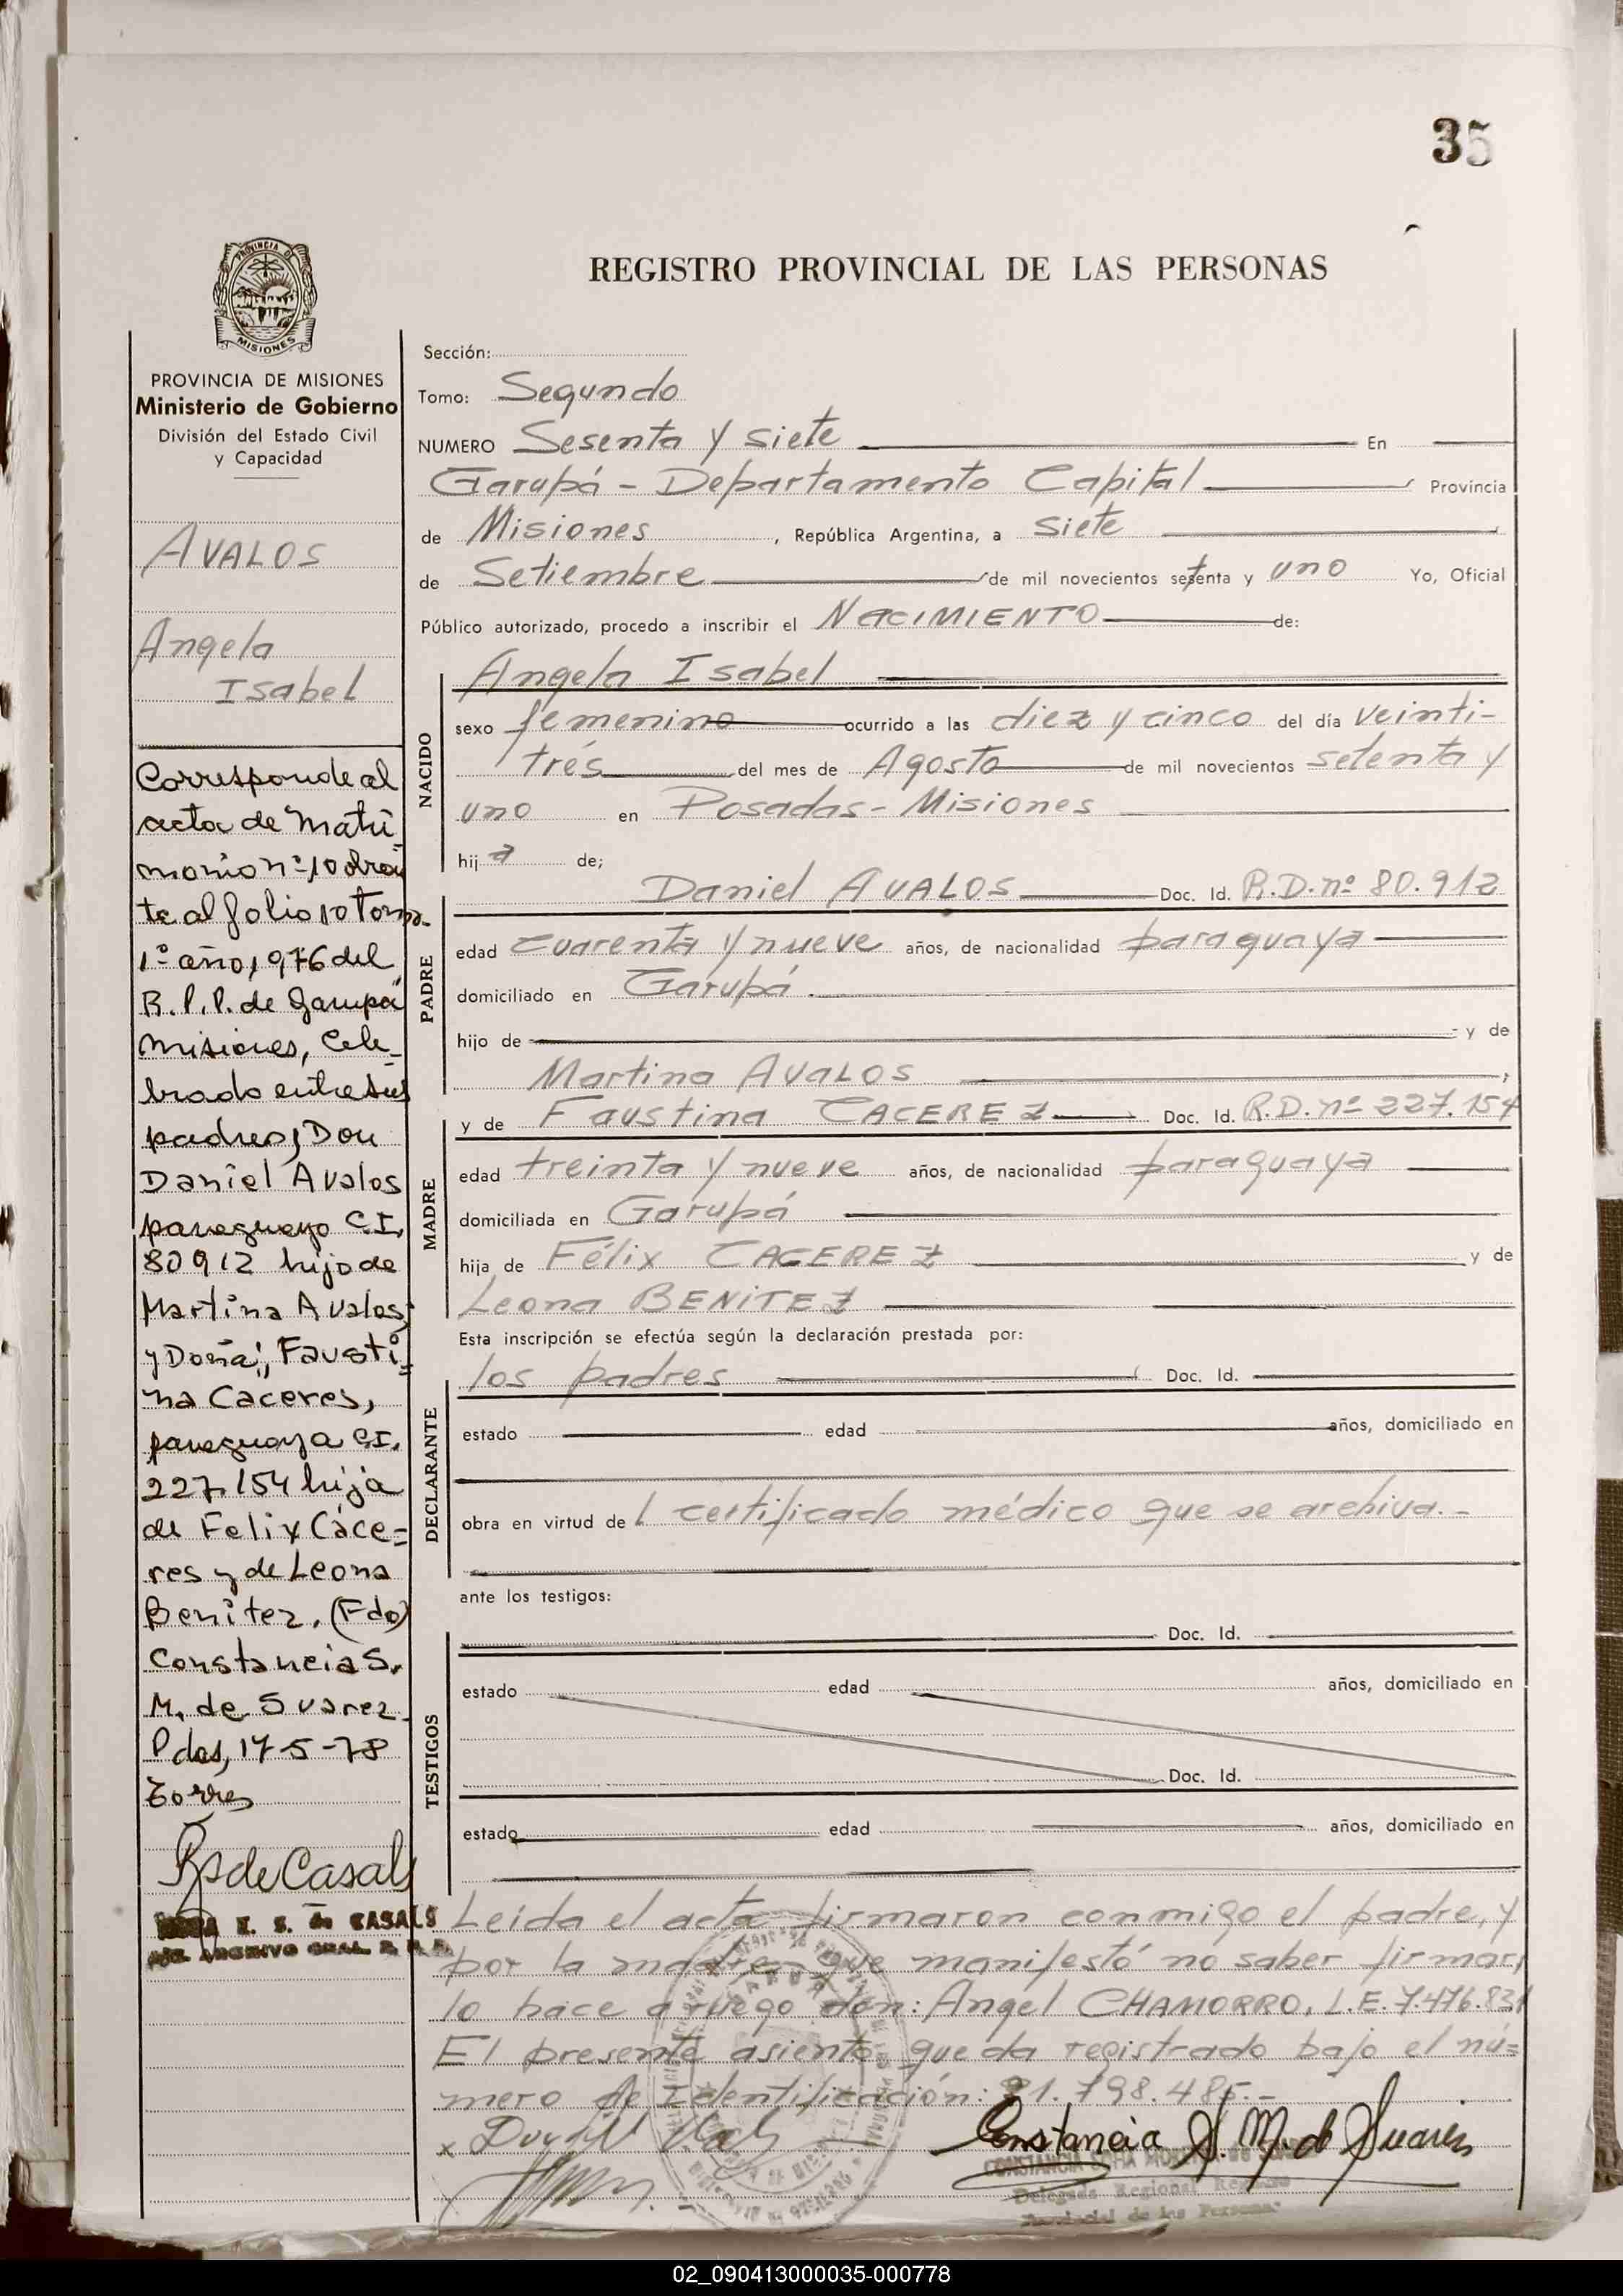 35
PROVINCIA DE
MISIONES
REGISTRO PROVINCIAL DE LAS PERSONAS
PROVINCIA DE MISIONES
Ministerio de Gobierno
División del Estado Civil
y Capacidad
AVALOS
Angela
Isabel
Corresponde al
acta de Matri
monio nº 10 obran
te al folio 10 tomo
1º año 1,976 del
R.P.P. de Garupá
Misiones, Cele-
brado entre sus
padres, Don
Daniel Avalos
paraguayo C.I.
80912 hijo de
Martina Avalos
y Doña, Fausti-
na Caceres,
paraguaya C.I.
227.154 hija
de Felix Cáce-
res y de Leona
Benitez. (Fdo)
Constancia S.
M. de Suarez
Pdas, 17-5-78
Torres
de Casals
E. S. de CASALS
ARCHIVO GRAL. R. P. P.
Sección:
Tomo: Segundo
NUMERO Sesenta y siete En
Garupá - Departamento Capital Provincia
de Misiones, República Argentina, a siete
de Setiembre de mil novecientos setenta y uno Yo, Oficial
Público autorizado, procedo a inscribir el NACIMIENTO de:
NACIDO
Angela Isabel
sexo femenino ocurrido a las diez y cinco del día veinti-
trés del mes de Agosto de mil novecientos setenta y
uno en Posadas - Misiones
hija de;
PADRE
Daniel AVALOS Doc. Id. R.D. nº 80.912
edad cuarenta y nueve años, de nacionalidad paraguaya
domiciliado en Garupá.
hijo de y de
Martina AVALOS,
MADRE
y de Faustina CACEREZ Doc. Id. R.D. nº 227.154
edad treinta y nueve años, de nacionalidad paraguaya
domiciliada en Garupá
hija de Félix CACEREZ y de
Leona BENITEZ
Esta inscripción se efectúa según la declaración prestada por:
DECLARANTE
los padres Doc. Id.
estado edad años, domiciliado en
obra en virtud del certificado médico que se archiva.-
ante los testigos:
TESTIGOS
Doc. Id.
estado edad años, domiciliado en
Doc. Id.
estado edad años, domiciliado en
Leida el acta firmaron conmigo el padre, y
por la madre que manifestó no saber firmar,
lo hace a ruego don: Angel CHAMORRO, L.E. 7.476.831
El presente asiento queda registrado bajo el nú-
mero de Identificación: 21.798.485.-
x
Constancia S. M. de Suarez
CONSTANCIA SOFIA
Delegada Regional Registro
Provincial de las Personas
02_090413000035-000778